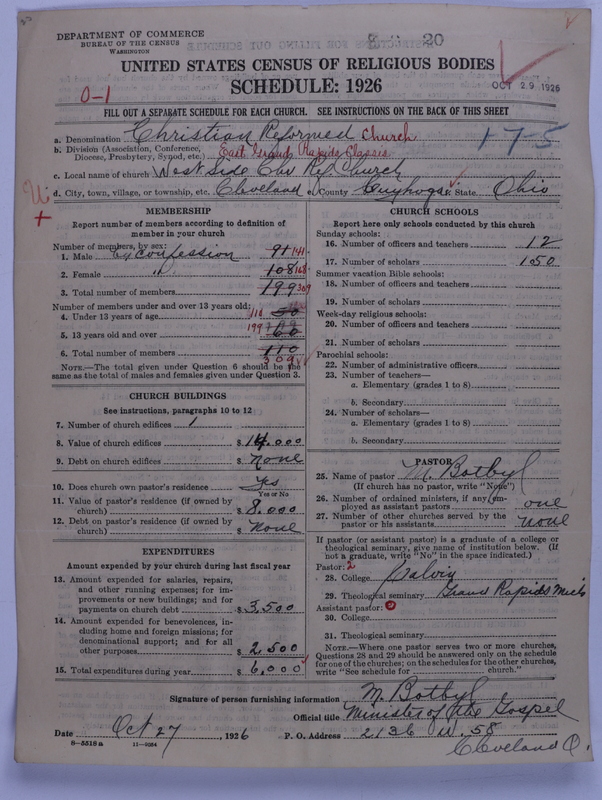 DEPARTMENT OF COMMERCE
BUREAU OF THE CENSUS
WASHINGTON
20
UNITED STATES CENSUS OF RELIGIOUS BODIES
SCHEDULE: 1926
OCT 29 1926
0-1
FILL OUT A SEPARATE SCHEDULE FOR EACH CHURCH. SEE INSTRUCTIONS ON THE BACK OF THIS SHEET
a. Denomination Christian Reformed Church
175
b. Division (Association, Conference, Diocese, Presbytery, Synod, etc.) East Grand Rapids Classis
c. Local name of church West Side Chr Ref. Church
d. City, town, village, or township, etc. Cleveland e. County Cuyhoga f. State Ohio
U
+
MEMBERSHIP
Report number of members according to definition of
member in your church
Number of members, by sex:
1. Male by confession 91 141
2. Female " 108 168
3. Total number of members 199 309
Number of members under and over 13 years old:
4. Under 13 years of age 110 50
5. 13 years old and over 199 60
6. Total number of members 110
309
NOTE.—The total given under Question 6 should be the
same as the total of males and females given under Question 3.
CHURCH BUILDINGS
See instructions, paragraphs 10 to 12
7. Number of church edifices 1
8. Value of church edifices $ 14.000
9. Debt on church edifices $ none
10. Does church own pastor's residence yes
Yes or No
11. Value of pastor's residence (if owned by
church) $ 8.000
12. Debt on pastor's residence (if owned by
church) $ none
EXPENDITURES
Amount expended by your church during last fiscal year
13. Amount expended for salaries, repairs,
and other running expenses; for im-
provements or new buildings; and for
payments on church debt $ 3,500
14. Amount expended for benevolences, in-
cluding home and foreign missions; for
denominational support; and for all
other purposes $ 2,500
15. Total expenditures during year $ 6,000
CHURCH SCHOOLS
Report here only schools conducted by this church
Sunday schools:
16. Number of officers and teachers 12
17. Number of scholars 150
Summer vacation Bible schools:
18. Number of officers and teachers
19. Number of scholars
Week-day religious schools:
20. Number of officers and teachers
21. Number of scholars
Parochial schools:
22. Number of administrative officers
23. Number of teachers—
a. Elementary (grades 1 to 8)
b. Secondary
24. Number of scholars—
a. Elementary (grades 1 to 8)
b. Secondary
PASTOR
25. Name of pastor M. Botbyl
(If church has no pastor, write "None")
26. Number of ordained ministers, if any, em-
ployed as assistant pastors one
27. Number of other churches served by the
pastor or his assistants none
If pastor (or assistant pastor) is a graduate of a college or
theological seminary, give name of institution below. (If
not a graduate, write "No" in the space indicated.)
Pastor: 2
28. College Calvin
29. Theological seminary Grand Rapids Mich
Assistant pastor: 0
30. College
31. Theological seminary
NOTE.—Where one pastor serves two or more churches,
Questions 28 and 29 should be answered only on the schedule
for one of the churches; on the schedules for the other churches,
write "See schedule for church."
Signature of person furnishing information M. Botbyl
Official title Minister of the Gospel
Date Oct 27, 1926 P. O. Address 2136 W. 58
8-5518a 11-9284
Cleveland O.